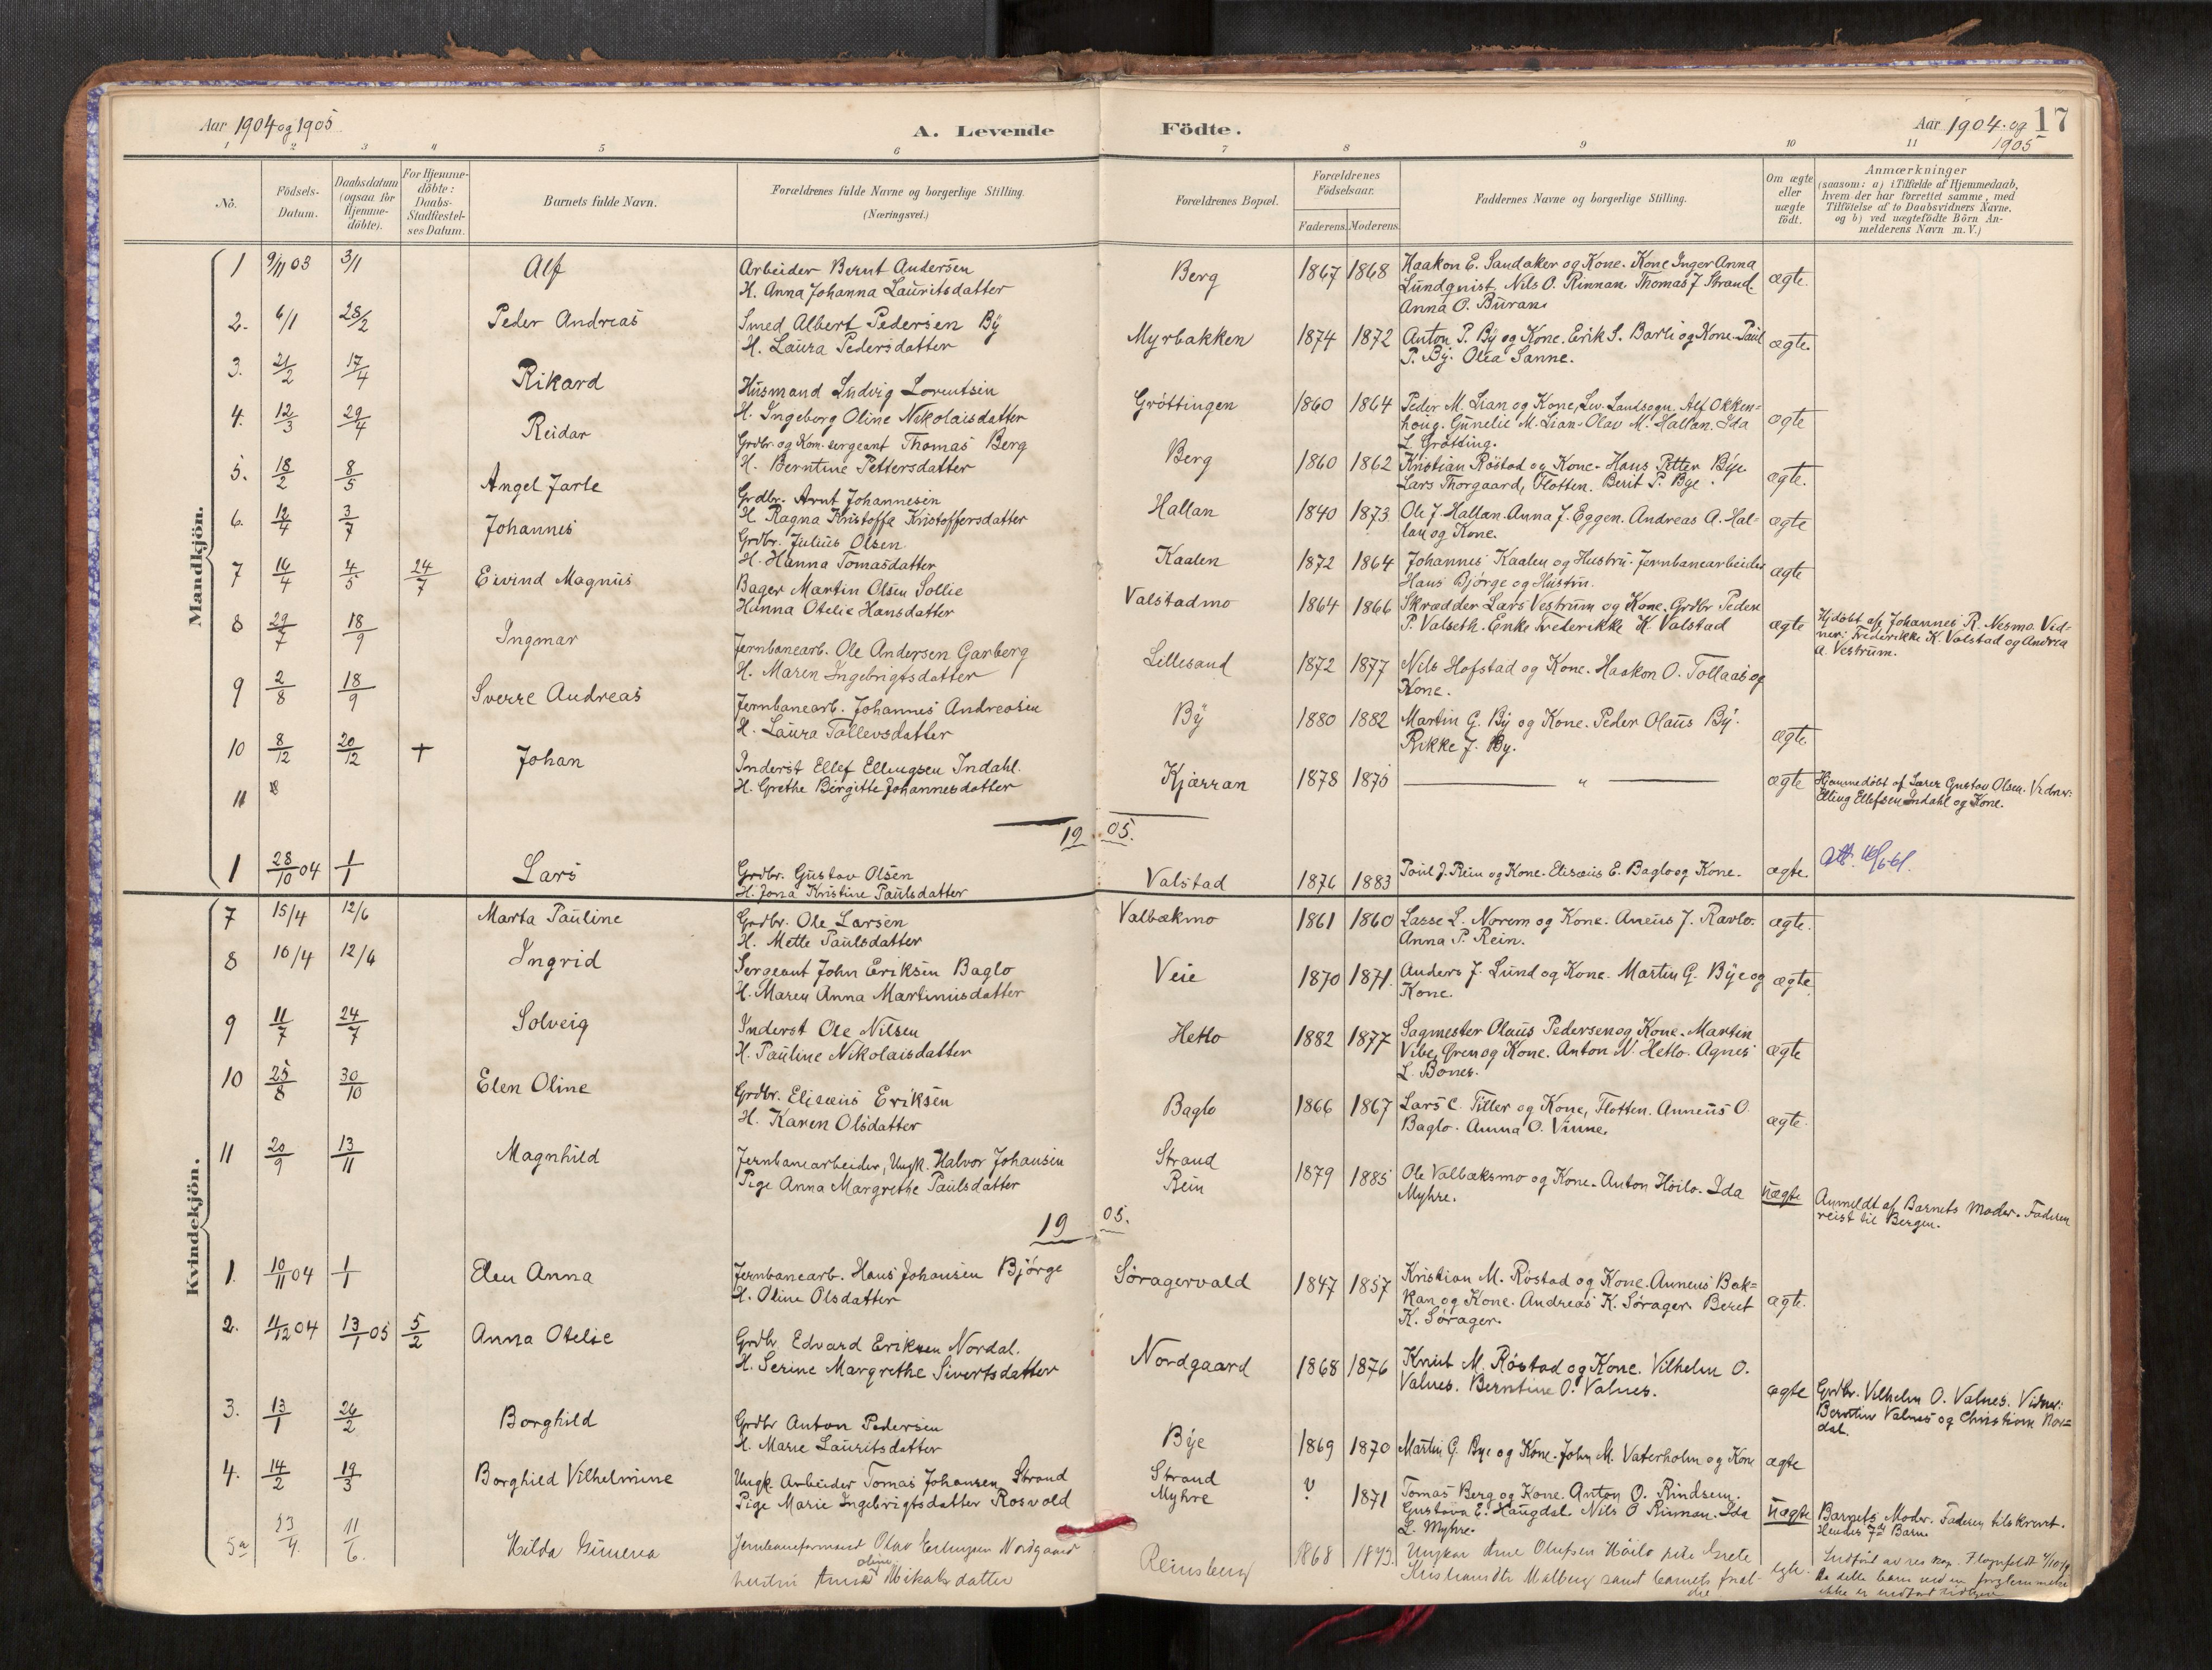 Aar 1904 og 1905
A. Levende Födte.
Aar 1904 og 1905
17
1 2 3 4 5 6 7 8 9 10 11
No.
Födsels-Datum.
Daabsdatum (ogsaa for Hjemme-döbte).
For Hjemme-döbte: Daabs-Stadfæstel-ses Datum.
Barnets fulde Navn.
Forældrenes fulde Navne og borgerlige Stilling. (Næringsvei.)
Forældrenes Bopæl.
Forældrenes Födselsaar.
Faderens. Moderens.
Faddernes Navne og borgerlige Stilling.
Om ægte eller uægte födt.
Anmærkninger
(saasom: a) i Tilfælde af Hjemmedaab, hvem der har forrettet samme, med Tilföielse af to Daabsvidners Navne, og b) ved uægtefödte Börn Anmelderens Navn m. V.)
Mandkjön.
1 9/11 03 3/1 Alf
Arbeider Bernt Andersen
H. Anna Johanna Lauritsdatter
Berg 1867 1868
Haakon E. Sandaker og Kone. Kone Inger Anna
Lundquist. Nils O. Rinnan. Thomas J Strand.
Anna O. Buran.
ægte.
2. 6/1 28/2 Peder Andreas
Smed Albert Pedersen By
H. Laura Pedersdatter
Myrbakken 1874 1872
Anton P. By og Kone. Erik S. Barli og Kone. Paul
P. By. Olea Sanne.
ægte.
3. 21/2 17/4 Rikard
Husmand Ludvig Lorentsen
H. Ingeborg Oline Nikolaisdatter
Gröttingen 1860 1864
Peder M. Lian og Kone, Lev. Landsogn. Alf Okken=
houg. Gunelie M. Lian. Olav M. Hallan. Ida
L Grötting.
ægte
4. 12/3 29/4 Reidar
Grdbr. og Kom. sergeant Thomas Berg
H. Berntine Pettersdatter
Berg 1860 1862
Kristian Röstad og Kone. Hans Petter Bye.
Lars Thorgaard, Flotten. Berit P. Bye.
ægte.
5. 18/2 8/5 Angel Jarle
Grdbr. Arnt Johannesen
H. Ragna Kristoffa Kristoffersdatter
Hallan 1840 1873
Ole J. Hallan. Anna J. Eggen. Andreas A. Hal=
lan og Kone.
ægte
6. 12/4 3/7 Johannes
Grdbr. Julius Olsen
H. Hanna Tomasdatter
Kaalen 1872 1864
Johannes Kaalen og Hustru. Jernbanearbeider
Hans Bjørge og Hustru.
ægte
7 16/4 4/5 24/7 Eivind Magnus
Bager Martin Olsen Sollie
Hanna Otelie Hansdatter
Valstadmo 1864 1866
Skrædder Lars Vestrum og Kone. Grdbr Peder
P. Valseth. Enke Frederikke K. Valstad
ægte
Hjdöbt af Johannes R. Nesmo. Vid=
ner: Frederikke K. Valstad og Andrea
A. Vestrum.
8 29/7 18/9 Ingmar
Jernbanearb. Ole Andersen Garberg
H. Maren Ingebrigtsdatter
Lillesand 1872 1877
Nils Hofstad og Kone. Haakon O. Tollaas og
Kone.
9 2/8 18/9 Sverre Andreas
Jernbanearb. Johannes Andreasen
H. Laura Tollevsdatter
By 1880 1882
Martin G. By og Kone. Peder Olaus By.
Rikke J. By.
ægte.
10 8/12 20/12 + Johan
Inderst Ellef Ellingsen Indahl.
H. Grethe Birgitte Johannesdatter
Kjærran 1878 1875
"
ægte
Hjemmedöbt af Lærer Gustav Olsen. Vidner:
Elling Ellefsen Indahl og Kone.
11
19 05.
1 28/10 04 1/1 Lars
Grdbr. Gustav Olsen
H. Jona Kristine Paulsdatter
Valstad 1876 1883
Poul J. Rein og Kone. Elisæus E. Baglo og Kone.
ægte.
Kvindekjön.
7 15/4 12/6 Marta Pauline
Grdbr. Ole Larsen
H. Mette Paulsdatter
Valbækmo 1861 1860
Lasse L. Norem og Kone. Aneus J. Ravlo.
Anna P. Rein.
ægte.
8 10/4 12/6 Ingrid
Sergeant John Eriksen Baglo
H. Maren Anna Martinusdatter
Veie 1870 1871.
Anders J. Lund og Kone. Martin G. Bye og
Kone.
ægte
9 11/7 24/7 Solveig
Inderst Ole Nilsen
H. Pauline Nikolaisdatter
Hetlo 1882 1877
Sagmester Olaus Pedersen og Kone. Martin
Vibe, Gren og Kone. Anton N. Hetlo. Agnes
L. Bones.
ægte
10 25/8 30/10 Elen Oline
Grdbr. Elisæus Eriksen
H. Karen Olsdatter
Baglo 1866 1867
Lars C. Tiller og Kone, Flotten. Anneus O.
Baglo. Anna O. Vinne.
ægte.
11 20/9 13/11 Magnhild
Jernbanearbeider, Ungk. Halvor Johansen
Pige Anna Margrethe Paulsdatter
Strand
Rein
1879 1885
Ole Valbæksmo og Kone. Anton Höilo. Ida
Myhre.
Uægte
Anmeldt af Barnets Moder. Faderen
reist til Bergen.
19 05.
1. 10/11 04 1/1 Elen Anna
Jernbanearb. Hans Johansen Bjørge
H. Oline Olsdatter
Söragervald 1847 1857
Kristian M. Röstad og Kone. Anneus Bak=
kan og Kone. Andreas K. Sörager. Beret
K. Sörager.
ægte.
2. 11/12 04 13/1 05 5/2 Anna Otelie
Grdbr Edvard Eriksen Nordal.
H. Serine Margrethe Sivertsdatter
Nordgaard 1868 1876
Knut M. Röstad og Kone. Vilhelm O.
Valnes. Berntine O. Valnes.
ægte
Grdbr. Vilhelm O. Valnes. Vidner:
Berntine Valnes og Christiane Nor=
dal.
3. 13/1 26/2 Borghild
Grdbr Anton Pedersen
H. Marie Lauritsdatter
Bye 1869 1870
Martin G. Bye og Kone. John M. Vaterholm og Kone
ægte
4. 14/2 19/3 Borghild Vilhelmine
Ungk. Arbeider Tomas Johansen Strand
Pige Marie Ingebrigtsdatter Rosvold
Strand
Myhre
? 1871
Tomas Berg og Kone. Anton O. Rindsem.
Gustava E. Haugdal. Nils O Rinnan. Ida
L. Myhre.
Uægte
Barnets Moder. Faderen tilskrevet.
Hendes 7de Barn.
5a 23/4. 11/6. Hilda
Jernbaneformand Olav Erlingsen Nordgaard
hustru Anna Oline Mikalsdatter
Reinsberg 1868 1873.
Ungkar Arne Olufsen Höilo pike Grete
Malberg samt barnets
egte.
da dette barn ved en forglemmelse
ikke er indført tidligere